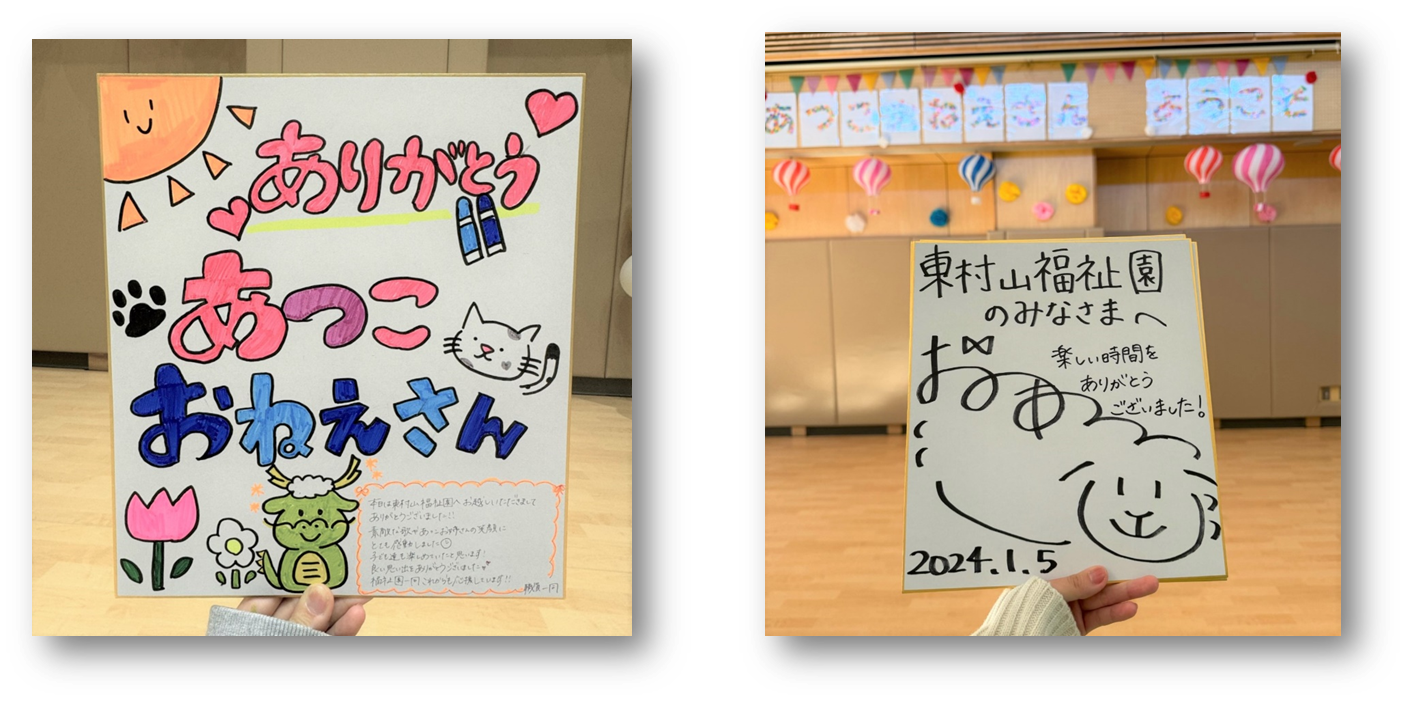 ありがとう
あつこ
おねえさん
本日は東村山福祉園へお越しいただきまして
ありがとうございました!!
素敵な歌やあつこお姉さんの笑顔に
とても感動しました
子ども達も楽しめていたと思います!
良い思い出をありがとうございました
福祉園一同これからも応援しています!!
職員一同
あつこおねえさん ようこそ
東村山福祉園
のみなさまへ
楽しい時間を
ありがとう
ございました!
2024.1.5